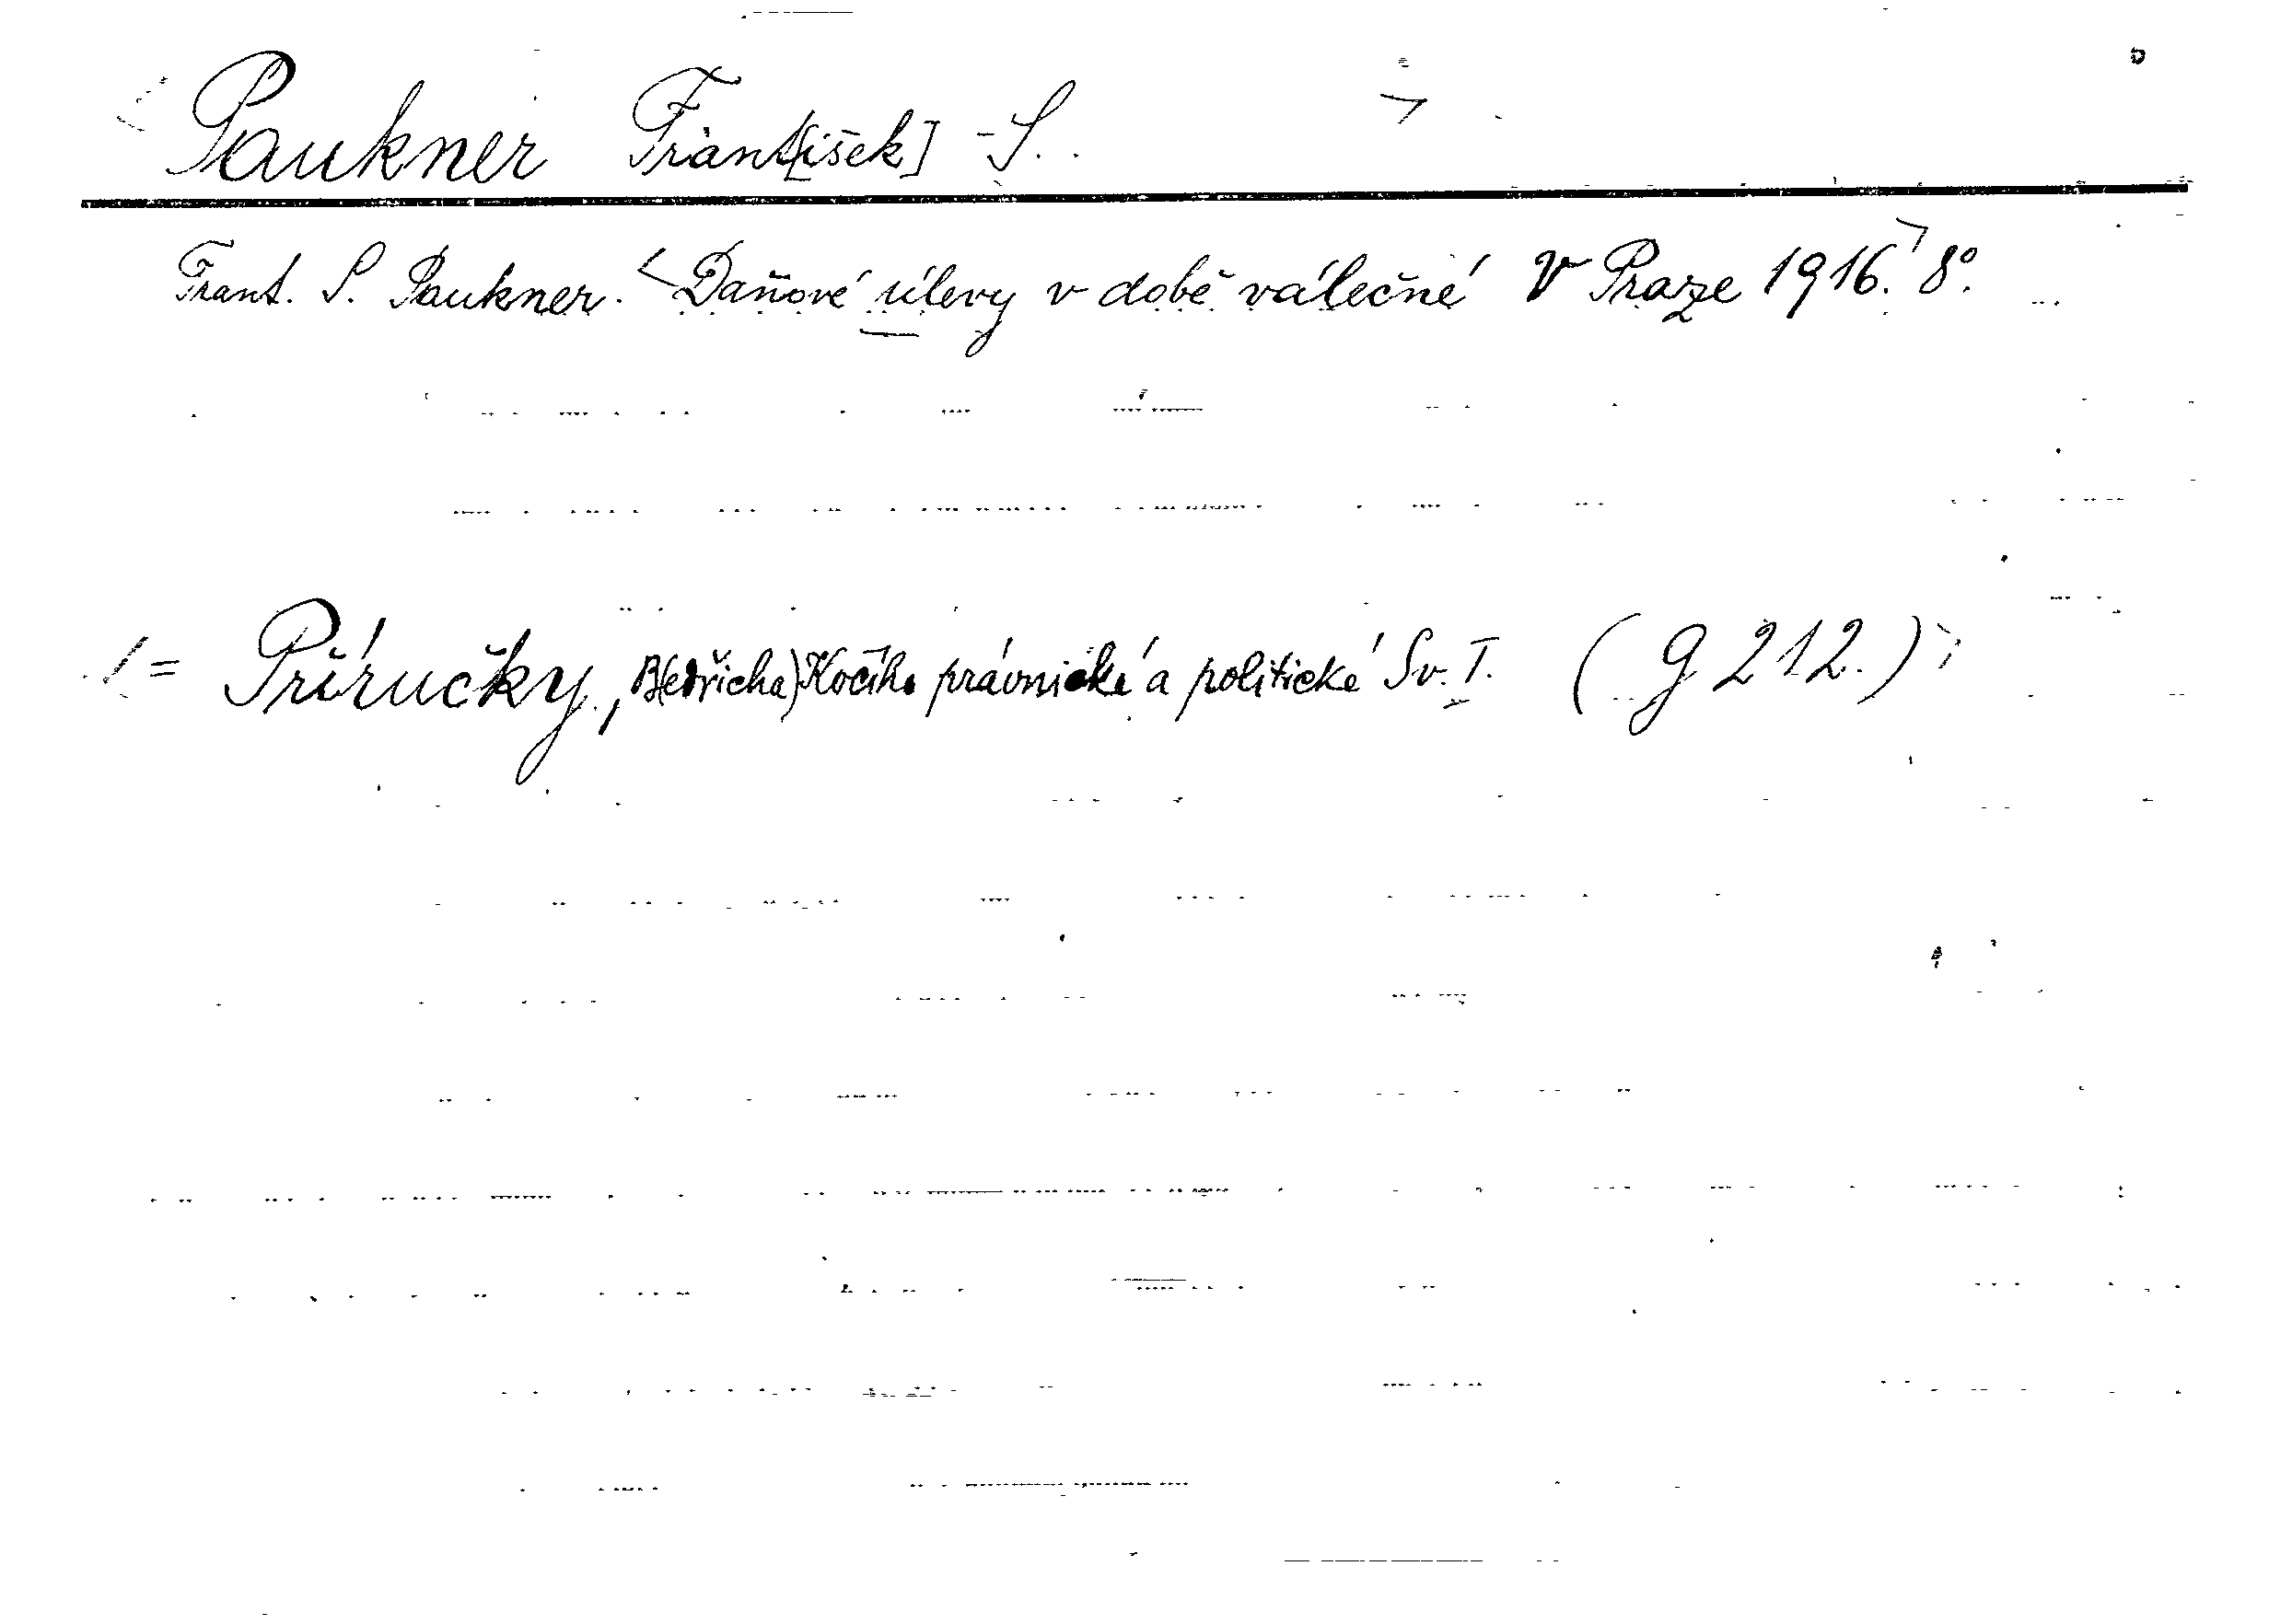 Paukner Frant[išek] S.
Frant. S. Paukner. Daňové úlevy v době válečné V Praze 1916. 8°.
= Příručky, B(edřicha) Kočího právnické a politické Sv. I. (g 212.)